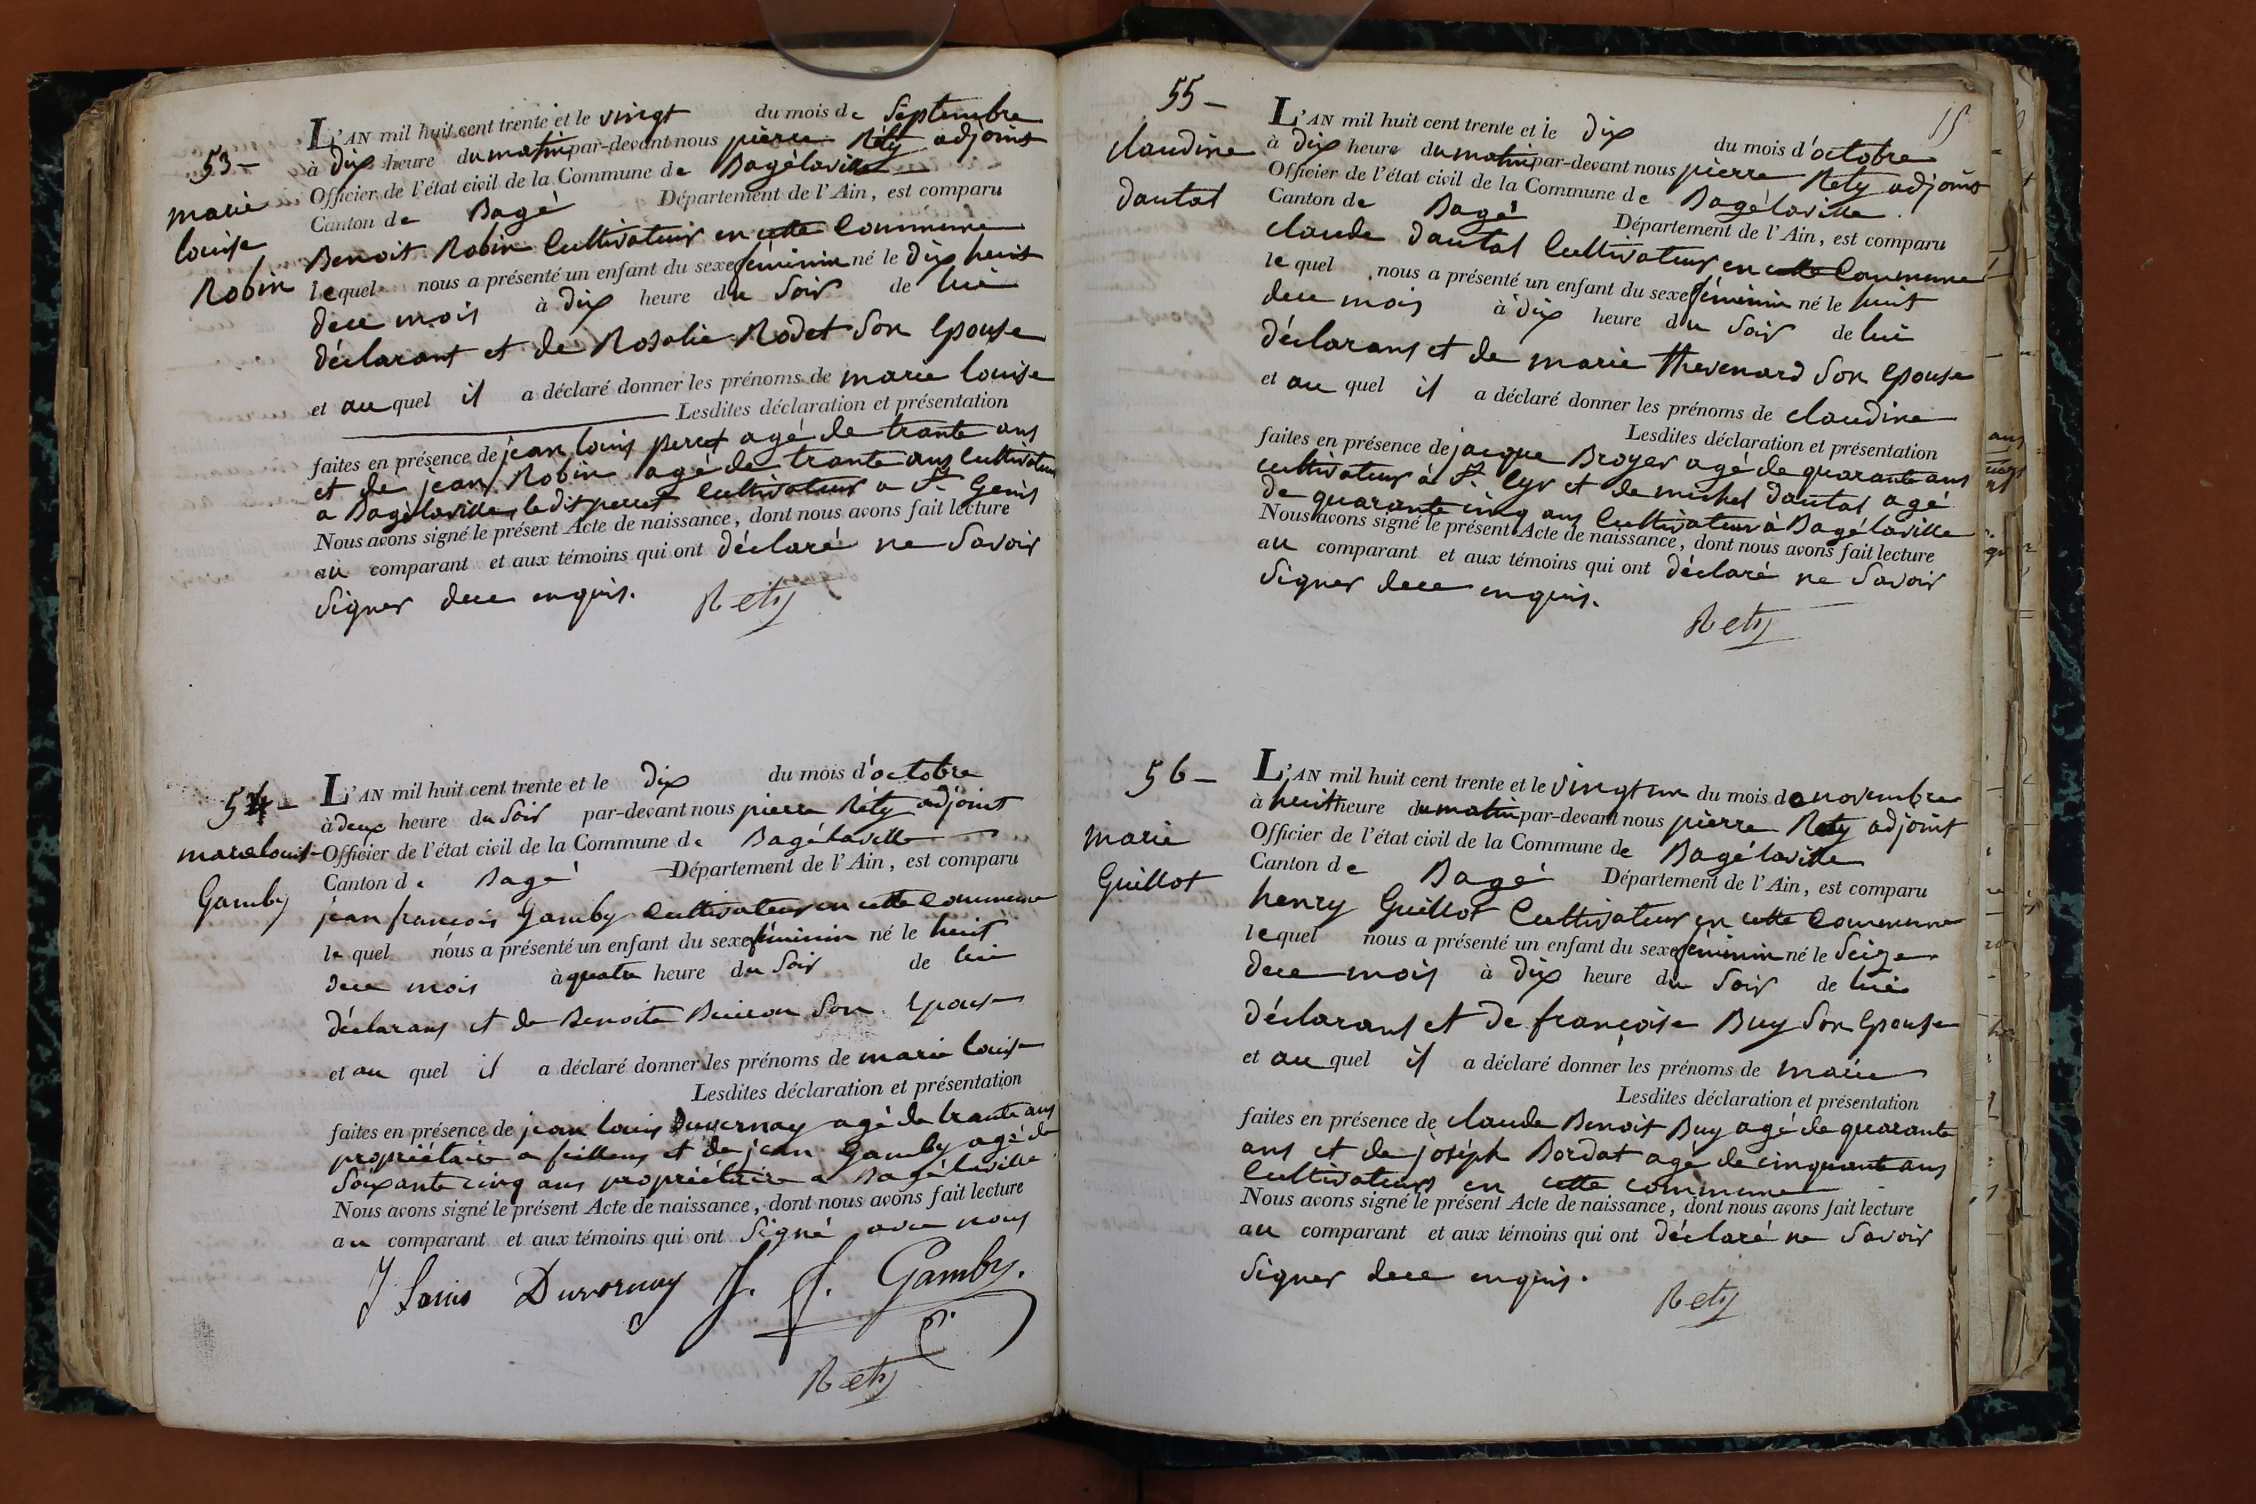 53 –
marie
louise
Robin
L'AN mil huit cent trente et le vingt du mois de Septembre
à dix heure du matin par-devant nous pierre Réty adjoint
Officier de l'état civil de la Commune de Bagélaville
Canton de Bagé Département de l'Ain, est comparu
Benoit Robin Cultivateur en cette Commune
lequel nous a présenté un enfant du sexe féminin né le dix huit
dece mois à dix heure du Soir de lui
déclarant et de Rosalie Rodet Son Epouse
et au quel il a déclaré donner les prénoms de marie louise
Lesdites déclaration et présentation
faites en présence de jean louis peret agé de trante ans
et de jean Robin agé de trante ans Cultivateur
a Bagélaville, ledit peret Cultivateur a St. Genis
Nous avons signé le présent Acte de naissance, dont nous avons fait lecture
au comparant et aux témoins qui ont déclaré ne Savoir
Signer dece enquis.
Rety
54 –
marie louise
Gamby
L'AN mil huit cent trente et le dix du mois d'octobre
à deux heure du Soir par-devant nous pierre Réty adjoint
Officier de l'état civil de la Commune de Bagélaville
Canton de Bagé Département de l'Ain, est comparu
jean francois Gamby Cultivateur en cette Commune
le quel nous a présenté un enfant du sexe féminin né le huit
dece mois à quatre heure du Soir de lui
déclarans et de Benoite Buiron Son Epouse
et au quel il a déclaré donner les prénoms de marie louise
Lesdites déclaration et présentation
faites en présence de jean louis Duvernay agé de trante ans
propriétaire a feillens et de jean Gamby agé de
Soixante cinq ans propriétaire a Bagélaville
Nous avons signé le présent Acte de naissance, dont nous avons fait lecture
au comparant et aux témoins qui ont Signé avec nous
J Louis Duvornay J. f. Gamby.
Rety
55 –
claudine
dautal
L'AN mil huit cent trente et le dix du mois d'octobre
à dix heure du matin par-devant nous pierre Rety adjoint
Officier de l'état civil de la Commune de Bagélaville
Canton de Bagé Département de l'Ain, est comparu
claude dautal Cultivateur en cette Commune
le quel nous a présenté un enfant du sexe féminin né le huit
dece mois à dix heure du Soir de lui
déclarans et de marie thevenard Son Epouse
et au quel il a déclaré donner les prénoms de claudine
Lesdites déclaration et présentation
faites en présence de jacque Broyer agé de quarante ans
cultivateur à St. Cyr et de michel dautal agé
de quarante cinq ans Cultivateur à Bagélaville
Nous avons signé le présent Acte de naissance, dont nous avons fait lecture
au comparant et aux témoins qui ont déclaré ne Savoir
Signer dece enquis.
Rety
56 –
marie
Guillot
L'AN mil huit cent trente et le vingt un du mois de novembre
à huit heure du matin par-devant nous pierre Rety adjoint
Officier de l'état civil de la Commune de Bagélaville
Canton de Bagé Département de l'Ain, est comparu
henry Guillot Cultivateur en cette Commune
lequel nous a présenté un enfant du sexe féminin né le Seize
dece mois à dix heure du Soir de lui
déclarans et de françoise Buy Son Epouse
et au quel il a déclaré donner les prénoms de marie
Lesdites déclaration et présentation
faites en présence de claude Benoit Buy agé de quarante
ans et de joséph Bordat agé de cinquante ans
Cultivateurs en cette commune
Nous avons signé le présent Acte de naissance, dont nous avons fait lecture
au comparant et aux témoins qui ont déclaré ne Savoir
Signer dece enquis.
Rety